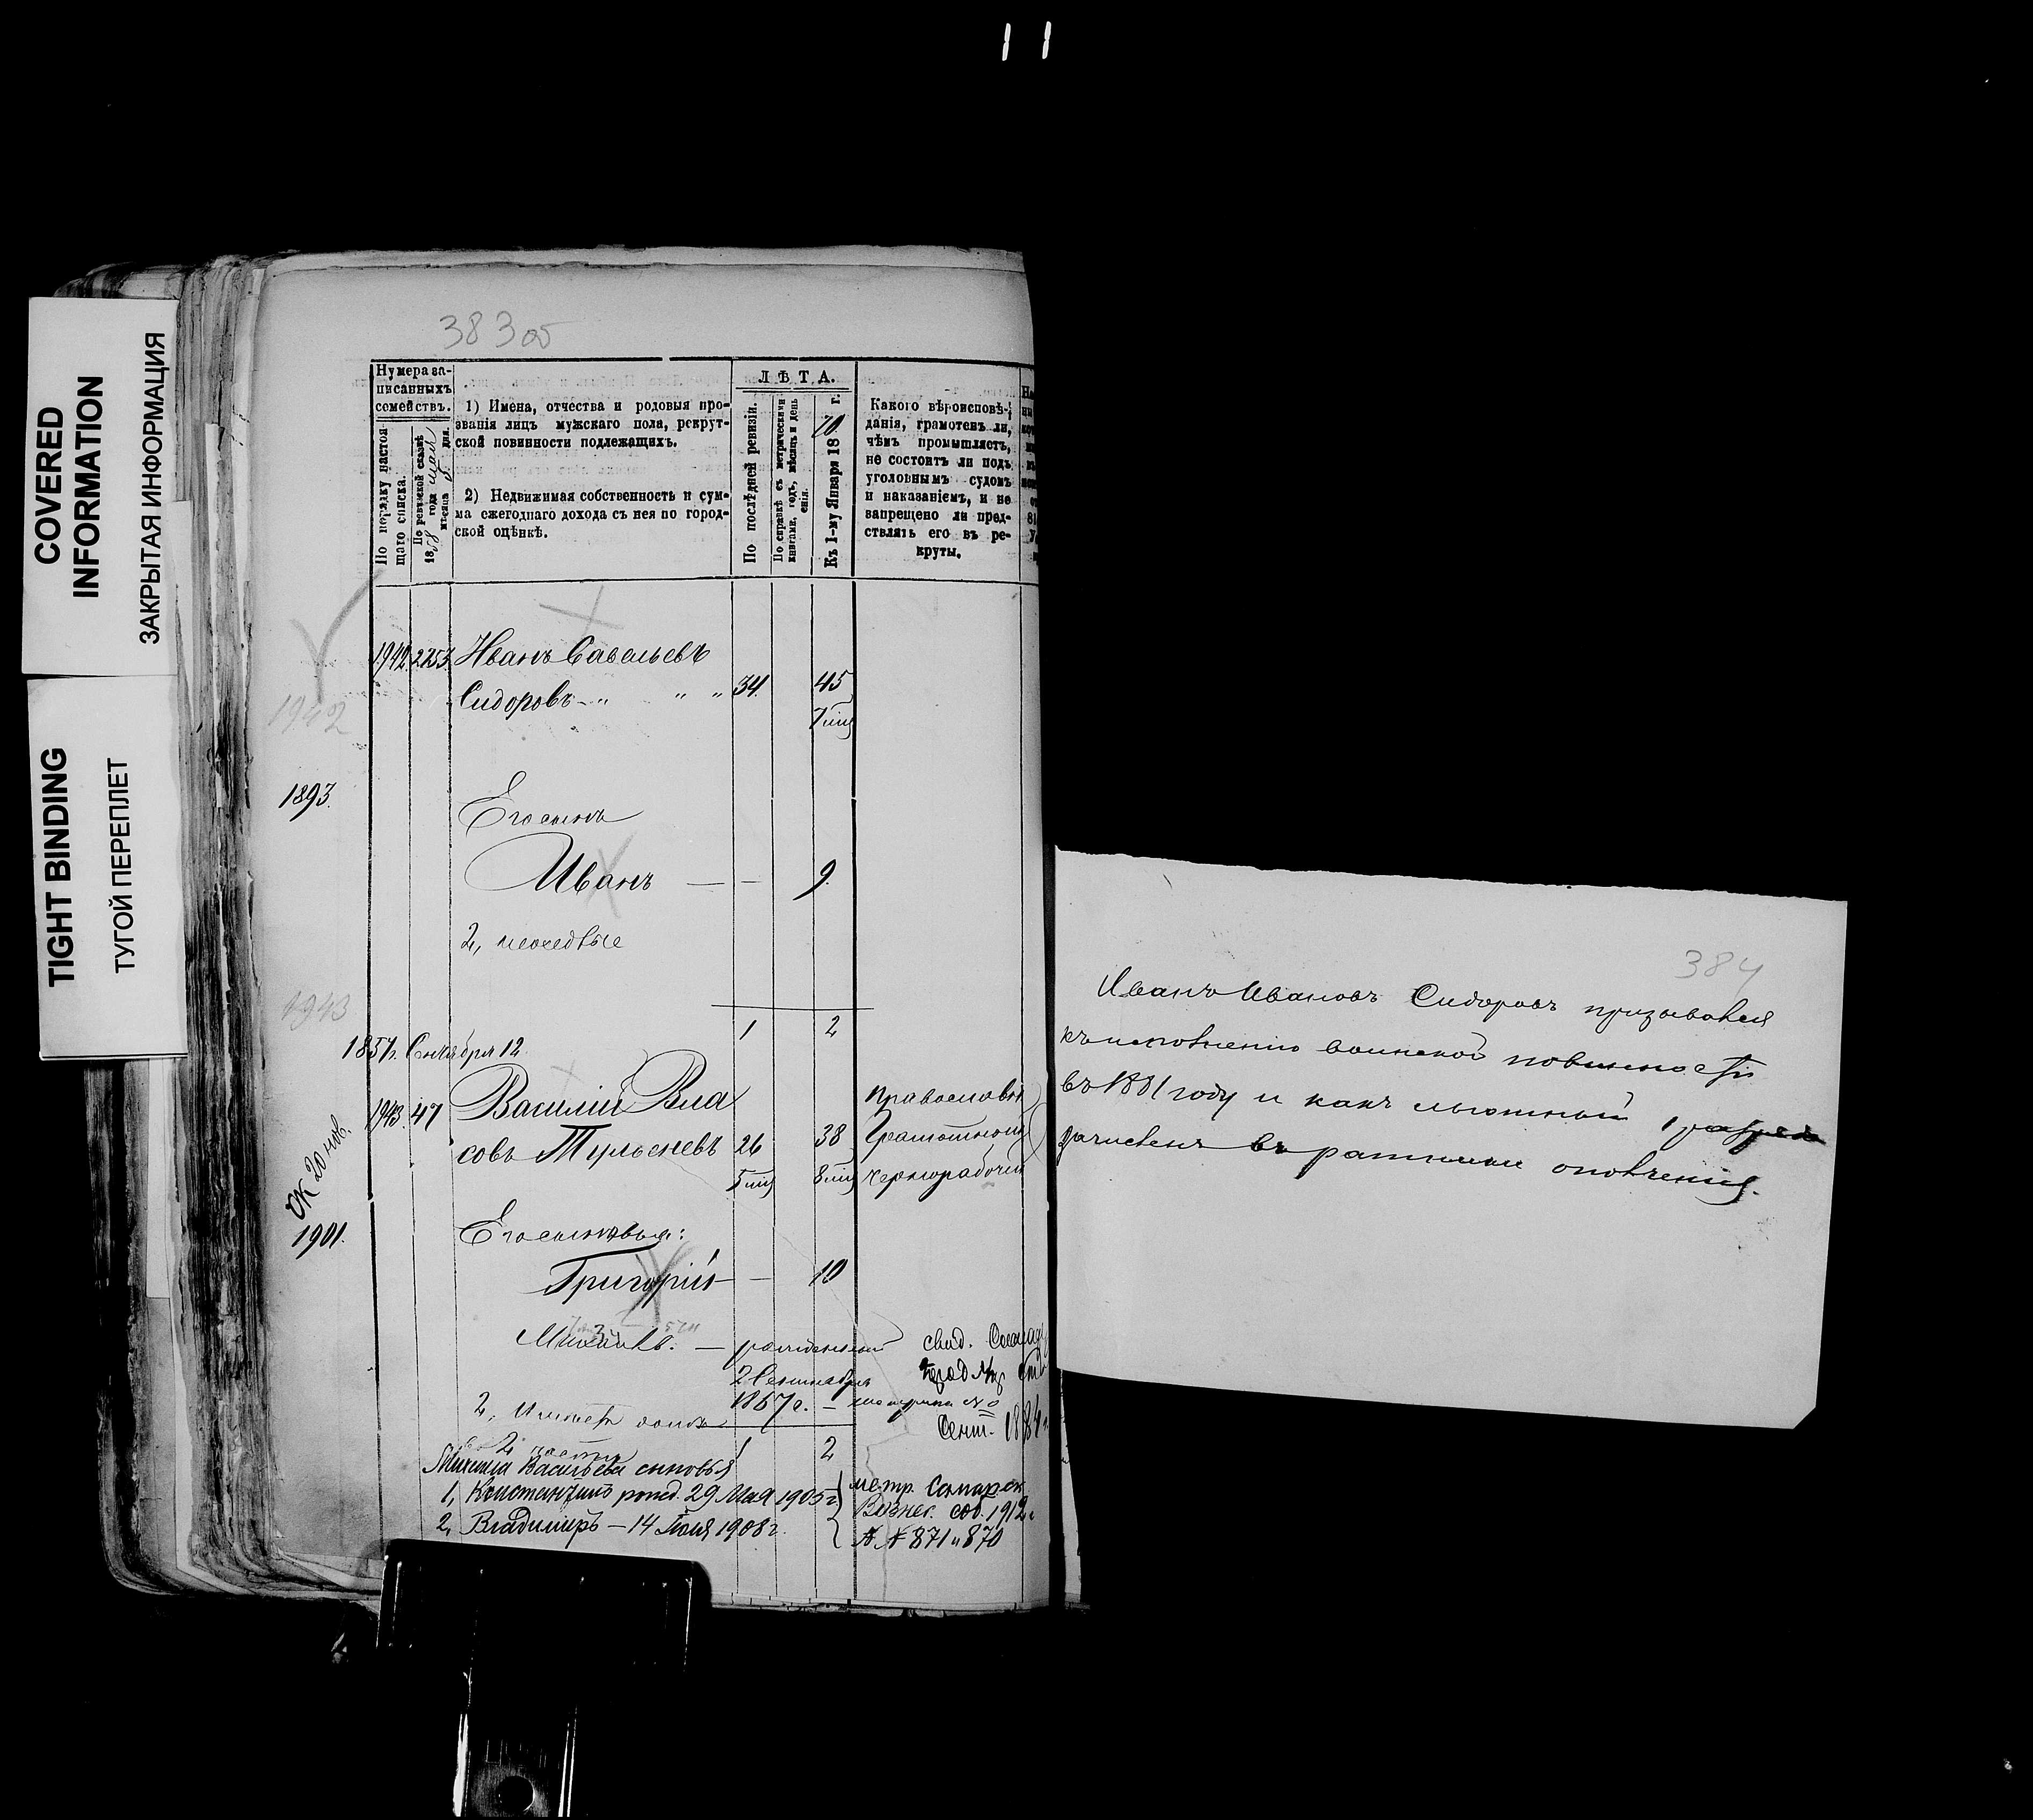 COVERED
INFORMATION
ЗАКРЫТАЯ ИНФОРМАЦИЯ
TIGHT BINDING
ТУГОЙ ПЕРЕПЛЕТ
383 об
Нумера за-
писанныхъ
семействъ.
По порядку настоя-
щаго списка.
По ревизской сказкѣ
1858 года
мѣсяца дня.
1) Имена, отчества и родовыя про-
званія лицъ мужскаго пола, рекрут-
ской повинности подлежащихъ.
2) Недвижимая собственность и сум-
ма ежегоднаго дохода съ нея по город-
ской оцѣнкѣ.
ЛѢТА.
По послѣдней ревизіи.
По справкѣ съ метрическими
книгами, годъ, мѣсяцъ и день
Къ 1-му Января 1870 г.
Какого вѣроисповѣ-
данія, грамотенъ ли,
чѣмъ промышляетъ,
не состоитъ ли подъ
уголовнымъ судомъ
и наказаніемъ, и не
запрещено ли пред-
ставлять его въ ре-
круты.
1942 2753 Иванъ Савельевъ
Сидоровъ - " " " 34. 45
1942
1893.
Его сынъ
Иванъ — — 9.
2,
1943
1 2
1857г. Октября 12
1943. 47 Василій Вла
совъ Тульеневъ 26 38
Православн
Грамотной
Чернорабочій
20 нов.
1901.
Его сыновья:
Григорій — 10
Михаилъ. — рожденный свид.
2 Сентября
1867г. —
2, Имѣетъ домъ
Сент. 1884
1 2
Михаила Васильева сыновья
1, Константинъ рожд. 29 Мая 1905г. метр. Самарск
Вознес. соб. 1912г
2, Владиміръ — 14 Іюля 1908г. № № 871 и 870
384
Иванъ Ивановъ Сидоровъ призывался
къ исполненію воинской повинности
въ 1881 году и какъ льготный 1 разряда
зачисленъ въ ратники ополченія.